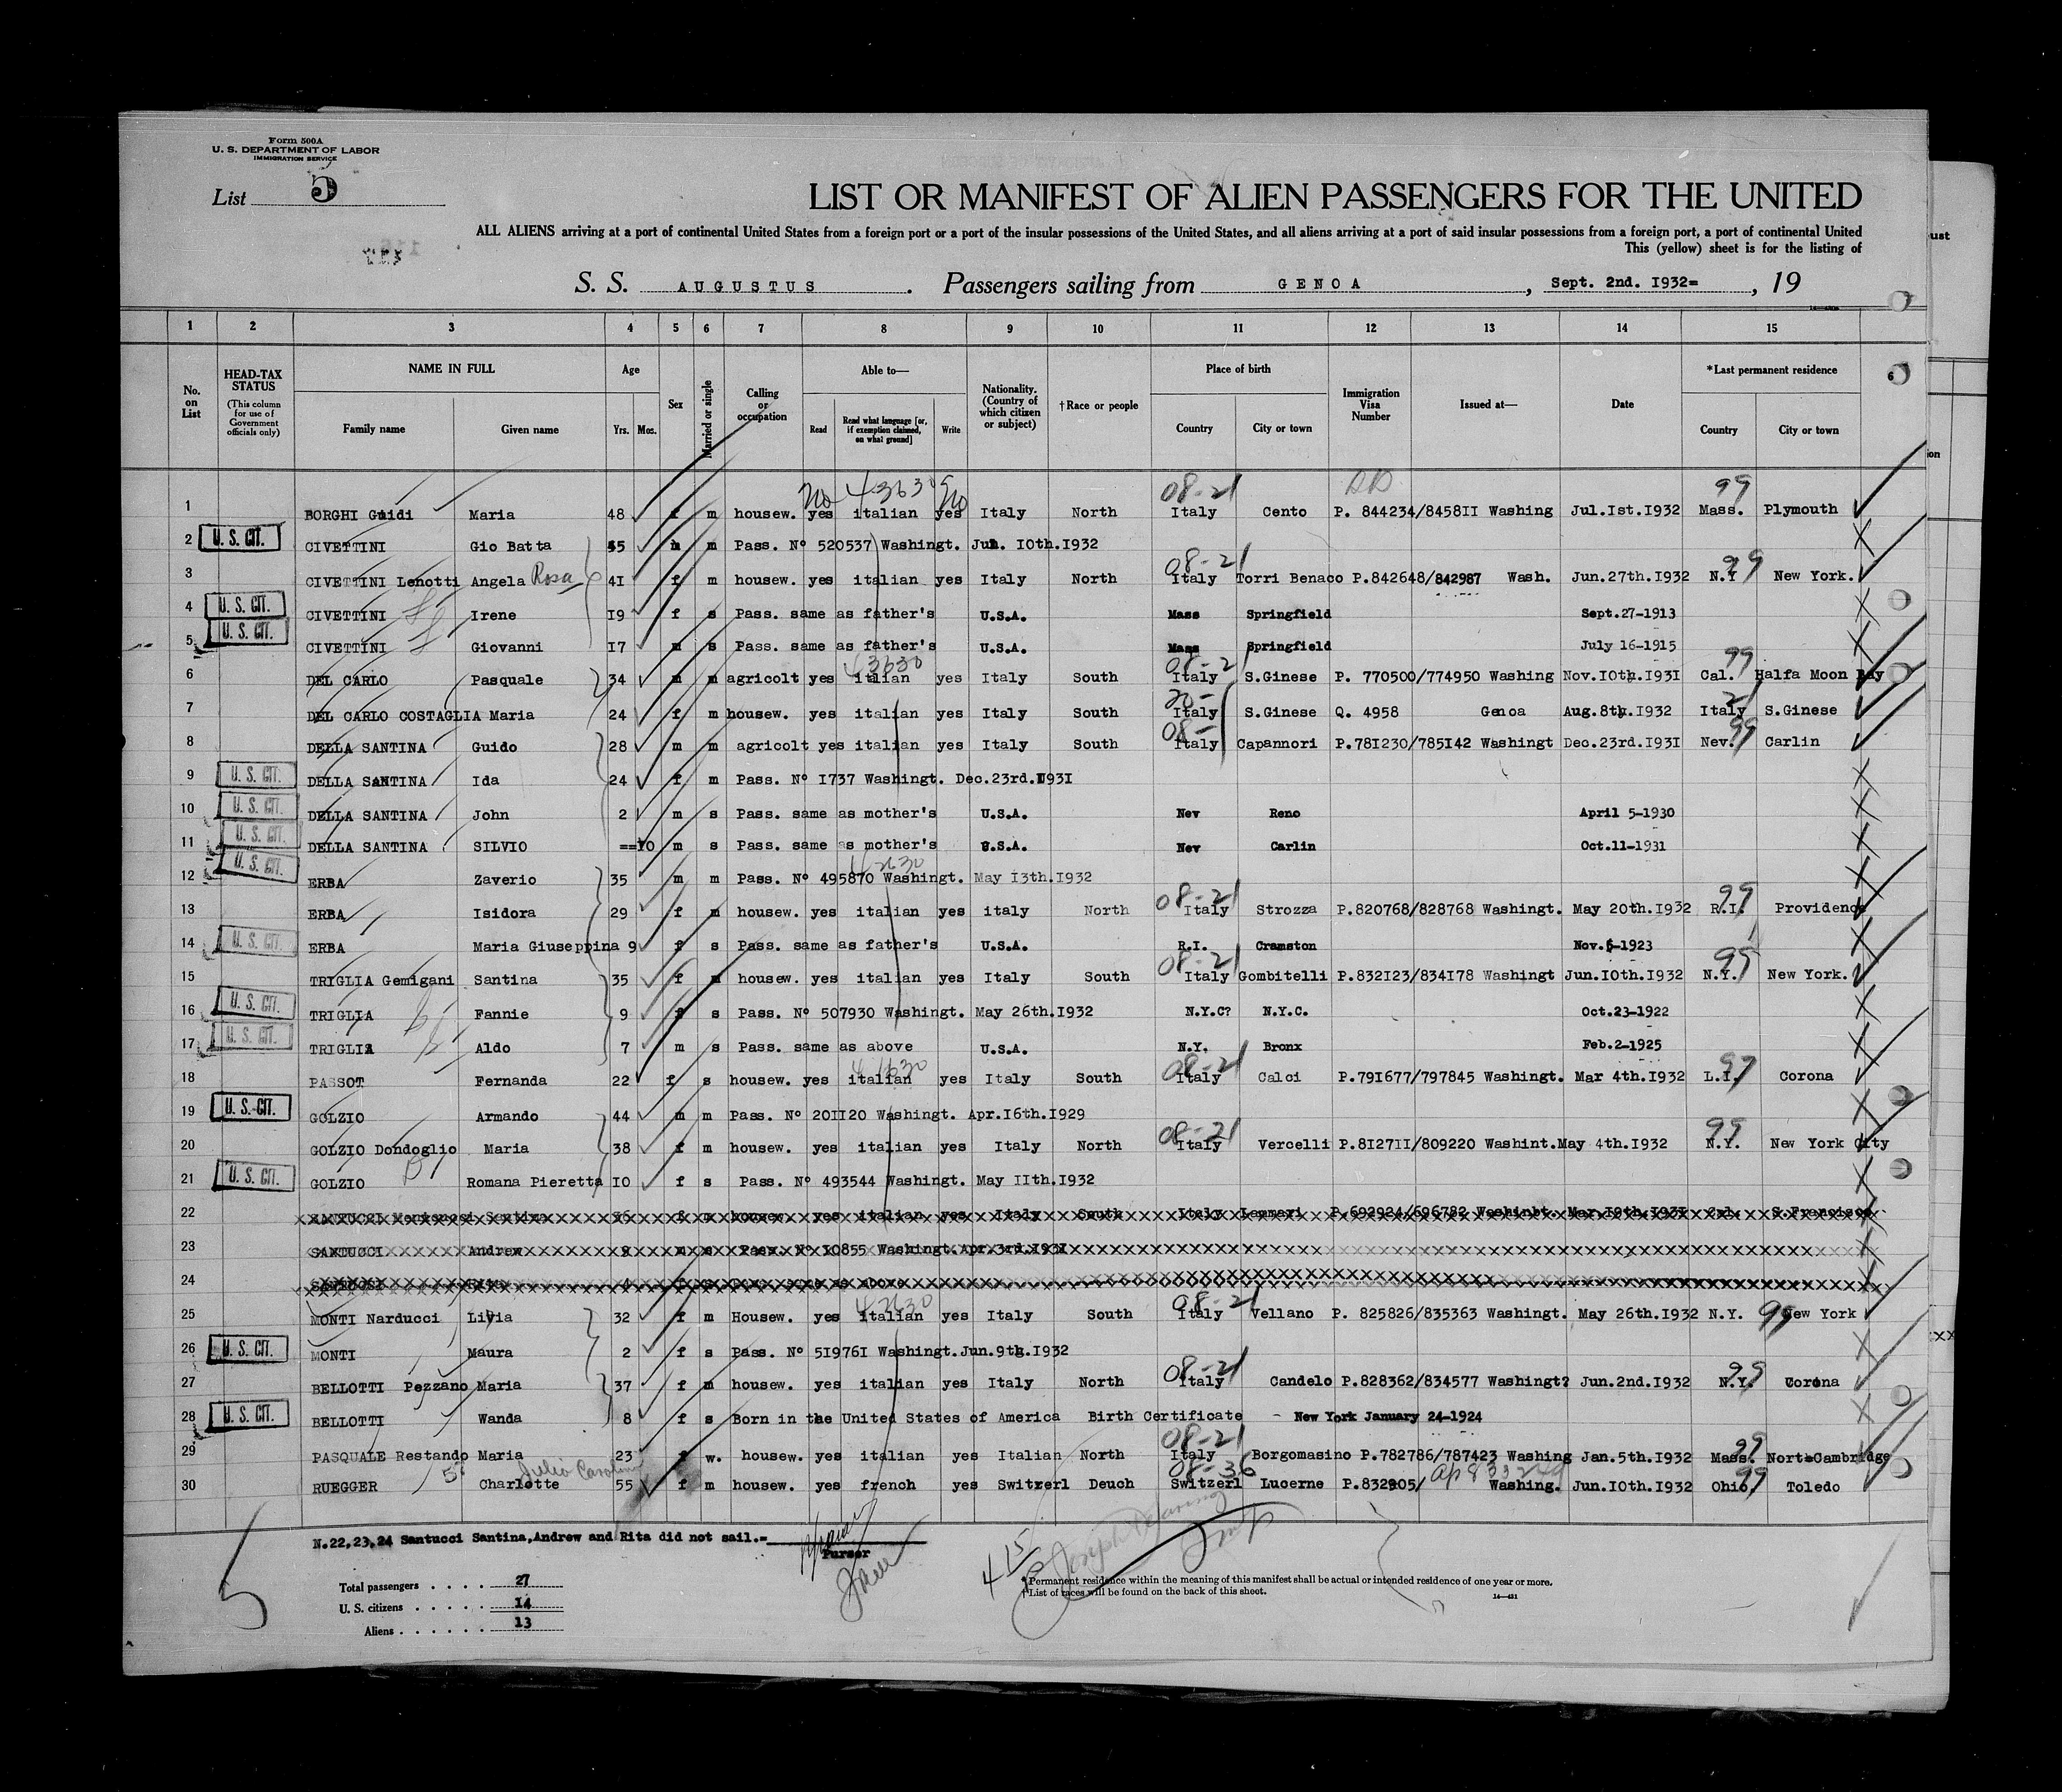 Form 500A
U. S. DEPARTMENT OF LABOR
IMMIGRATION SERVICE
List 5
LIST OR MANIFEST OF ALIEN PASSENGERS FOR THE UNITED
ALL ALIENS arriving at a port of continental United States from a foreign port or a port of the insular possessions of the United States, and all aliens arriving at a port of said insular possessions from a foreign port, a port of continental United
This (yellow) sheet is for the listing of
S. S. AUGUSTUS. Passengers sailing from GENOA, Sept. 2nd. I932=, 19
1 2 3 4 5 6 7 8 9 10 11 12 13 14 15
No. on List HEAD-TAX STATUS (This column for use of Government officials only) NAME IN FULL Family name Given name Age Yrs. Mos. Sex Married or single Calling or occupation Able to— Read Read what language [or, if exemption claimed, on what ground] Write Nationality. (Country of which citizen or subject) †Race or people Place of birth Country City or town Immigration Visa Number Issued at— Date *Last permanent residence Country City or town
No 43630 No 08-21 99
1 BORGHI Guidi Maria 48 f m housew. yes italian yes Italy North Italy Cento P. 844234/8458II Washing Jul.Ist.I932 Mass. Plymouth
2 U. S. CIT. CIVETTINI Gio Batta 55 m m Pass. Nº 520537 Washingt. Jun. IOth.I932
08-21 99
3 CIVETTINI Lenotti Angela Rosa 4I f m housew. yes italian yes Italy North Italy Torri Benaco P.842648/842987 Wash. Jun.27th.I932 N.Y New York.
4 U. S. CIT. CIVETTINI Irene I9 f s Pass. same as father's U.S.A. Mass Springfield Sept.27-1913
5 U. S. CIT. CIVETTINI Giovanni I7 m s Pass. same as father's U.S.A. Mass Springfield July 16-1915
43630 08-21 99
6 DEL CARLO Pasquale 34 m m agricolt yes italian yes Italy South Italy S.Ginese P. 770500/774950 Washing Nov.IOth.I93I Cal. Halfa Moon Bay
7 DEL CARLO COSTAGLIA Maria 24 f m housew. yes italian yes Italy South Italy S.Ginese Q. 4958 Genoa Aug.8th.I932 Italy S.Ginese
8 DELLA SANTINA Guido 28 m m agricolt yes italian yes Italy South Italy Capannori P.78I230/785I42 Washingt Dec.23rd.I93I Nev. Carlin
9 U. S. CIT. DELLA SANTINA Ida 24 f m Pass. Nº I737 Washingt. Dec.23rd.I93I
10 U. S. CIT. DELLA SANTINA John 2 m s Pass. same as mother's U.S.A. Nev Reno April 5-1930
11 U. S. CIT. DELLA SANTINA SILVIO ==10 m s Pass. same as mother's U.S.A. Nev Carlin Oct.11-1931
12 U. S. CIT. ERBA Zaverio 35 m m Pass. Nº 495870 Washingt. May I3th.I932
08-21 99
13 ERBA Isidora 29 f m housew. yes italian yes italy North Italy Strozza P.820768/828768 Washingt. May 20th.I932 R.I. Providence
14 U. S. CIT. ERBA Maria Giuseppina 9 f s Pass. same as father's U.S.A. R.I. Cranston Nov.6-1923
08-21 99
15 TRIGLIA Gemigani Santina 35 f m housew. yes italian yes Italy South Italy Gombitelli P.832I23/834I78 Washingt Jun.IOth.I932 N.Y. New York.
16 U. S. CIT. TRIGLIA Fannie 9 f s Pass. Nº 507930 Washingt. May 26th.I932 N.Y.C? N.Y.C. Oct.23-1922
17 U. S. CIT. TRIGLIA Aldo 7 m s Pass. same as above U.S.A. N.Y. Bronx Feb.2-1925
08-21 99
18 PASSOT Fernanda 22 f s housew. yes italian yes Italy South Italy Calci P.79I677/797845 Washingt. Mar 4th.I932 L.I. Corona
19 U. S. CIT. GOLZIO Armando 44 m m Pass. Nº 20II20 Washingt. Apr.I6th.I929
08-21 99
20 GOLZIO Dondoglio Maria 38 f m housew. yes italian yes Italy North Italy Vercelli P.8I27II/809220 Washint.May 4th.I932 N.Y. New York City
21 U. S. CIT. GOLZIO Romana Pieretta IO f s Pass. Nº 493544 Washingt. May IIth.I932
22 SANTUCCI Santina 36 f m housew. yes italian yes Italy South Italy Lammari P.692924/696782 Washinbt. Mar.I9th.I93I Cal. S.Francisco
23 SANTUCCI Andrew 9 m s Pass. Nº I0855 Washingt.Apr.3rd.I93I
24 SANTUCCI Rita 4 f s as above
08-21 99
25 MONTI Narducci Livia 32 f m Housew. yes italian yes Italy South Italy Vellano P. 825826/835363 Washingt. May 26th.I932 N.Y. New York
26 U. S. CIT. MONTI Maura 2 f s Pass. Nº 5I976I Washingt.Jun.9th.I932
08-21 99
27 BELLOTTI Pezzano Maria 37 f m housew. yes italian yes Italy North Italy Candelo P.828362/834577 Washingt? Jun.2nd.I932 N.Y. Corona
28 U. S. CIT. BELLOTTI Wanda 8 f s Born in the United States of America Birth Certificate - New York January 24-1924
08-21 99
29 PASQUALE Restando Maria 23 f w. housew. yes italian yes Italian North Italy Borgomasino P.782786/787423 Washing Jan.5th.I932 Mass. NorthCambridge
08-36 99
30 RUEGGER Charlotte 55 f m housew. yes french yes Switzerl Deuch Switzerl Lucerne P.832905/ Washing. Jun.IOth.I932 Ohio. Toledo
N.22,23,24 Santucci Santina,Andrew and Rita did not sail.=
Purser
Total passengers . . . . 27
U. S. citizens . . . . . 14
Aliens . . . . . . 13
5
*Permanent residence within the meaning of this manifest shall be actual or intended residence of one year or more.
†List of races will be found on the back of this sheet.
14—431